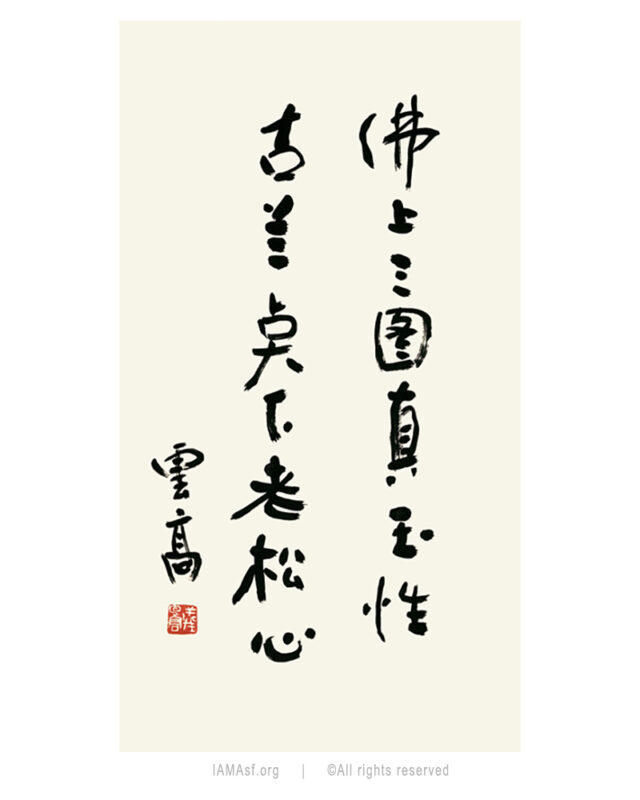 佛上三图真玉性
古兰点下老松心
雲高
IAMAsf.org | ©All rights reserved